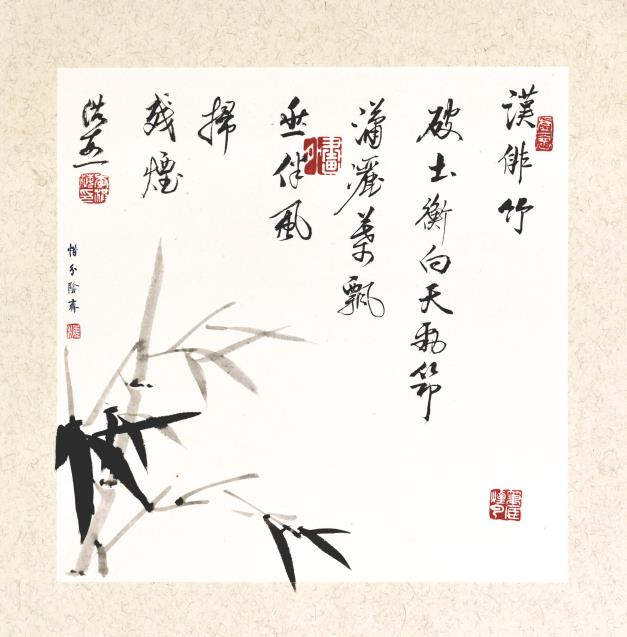 漢俳竹
破土衝向天氣節
瀟灑葉飄
然伴風
掃
殘煙
洪
惜分陰齋